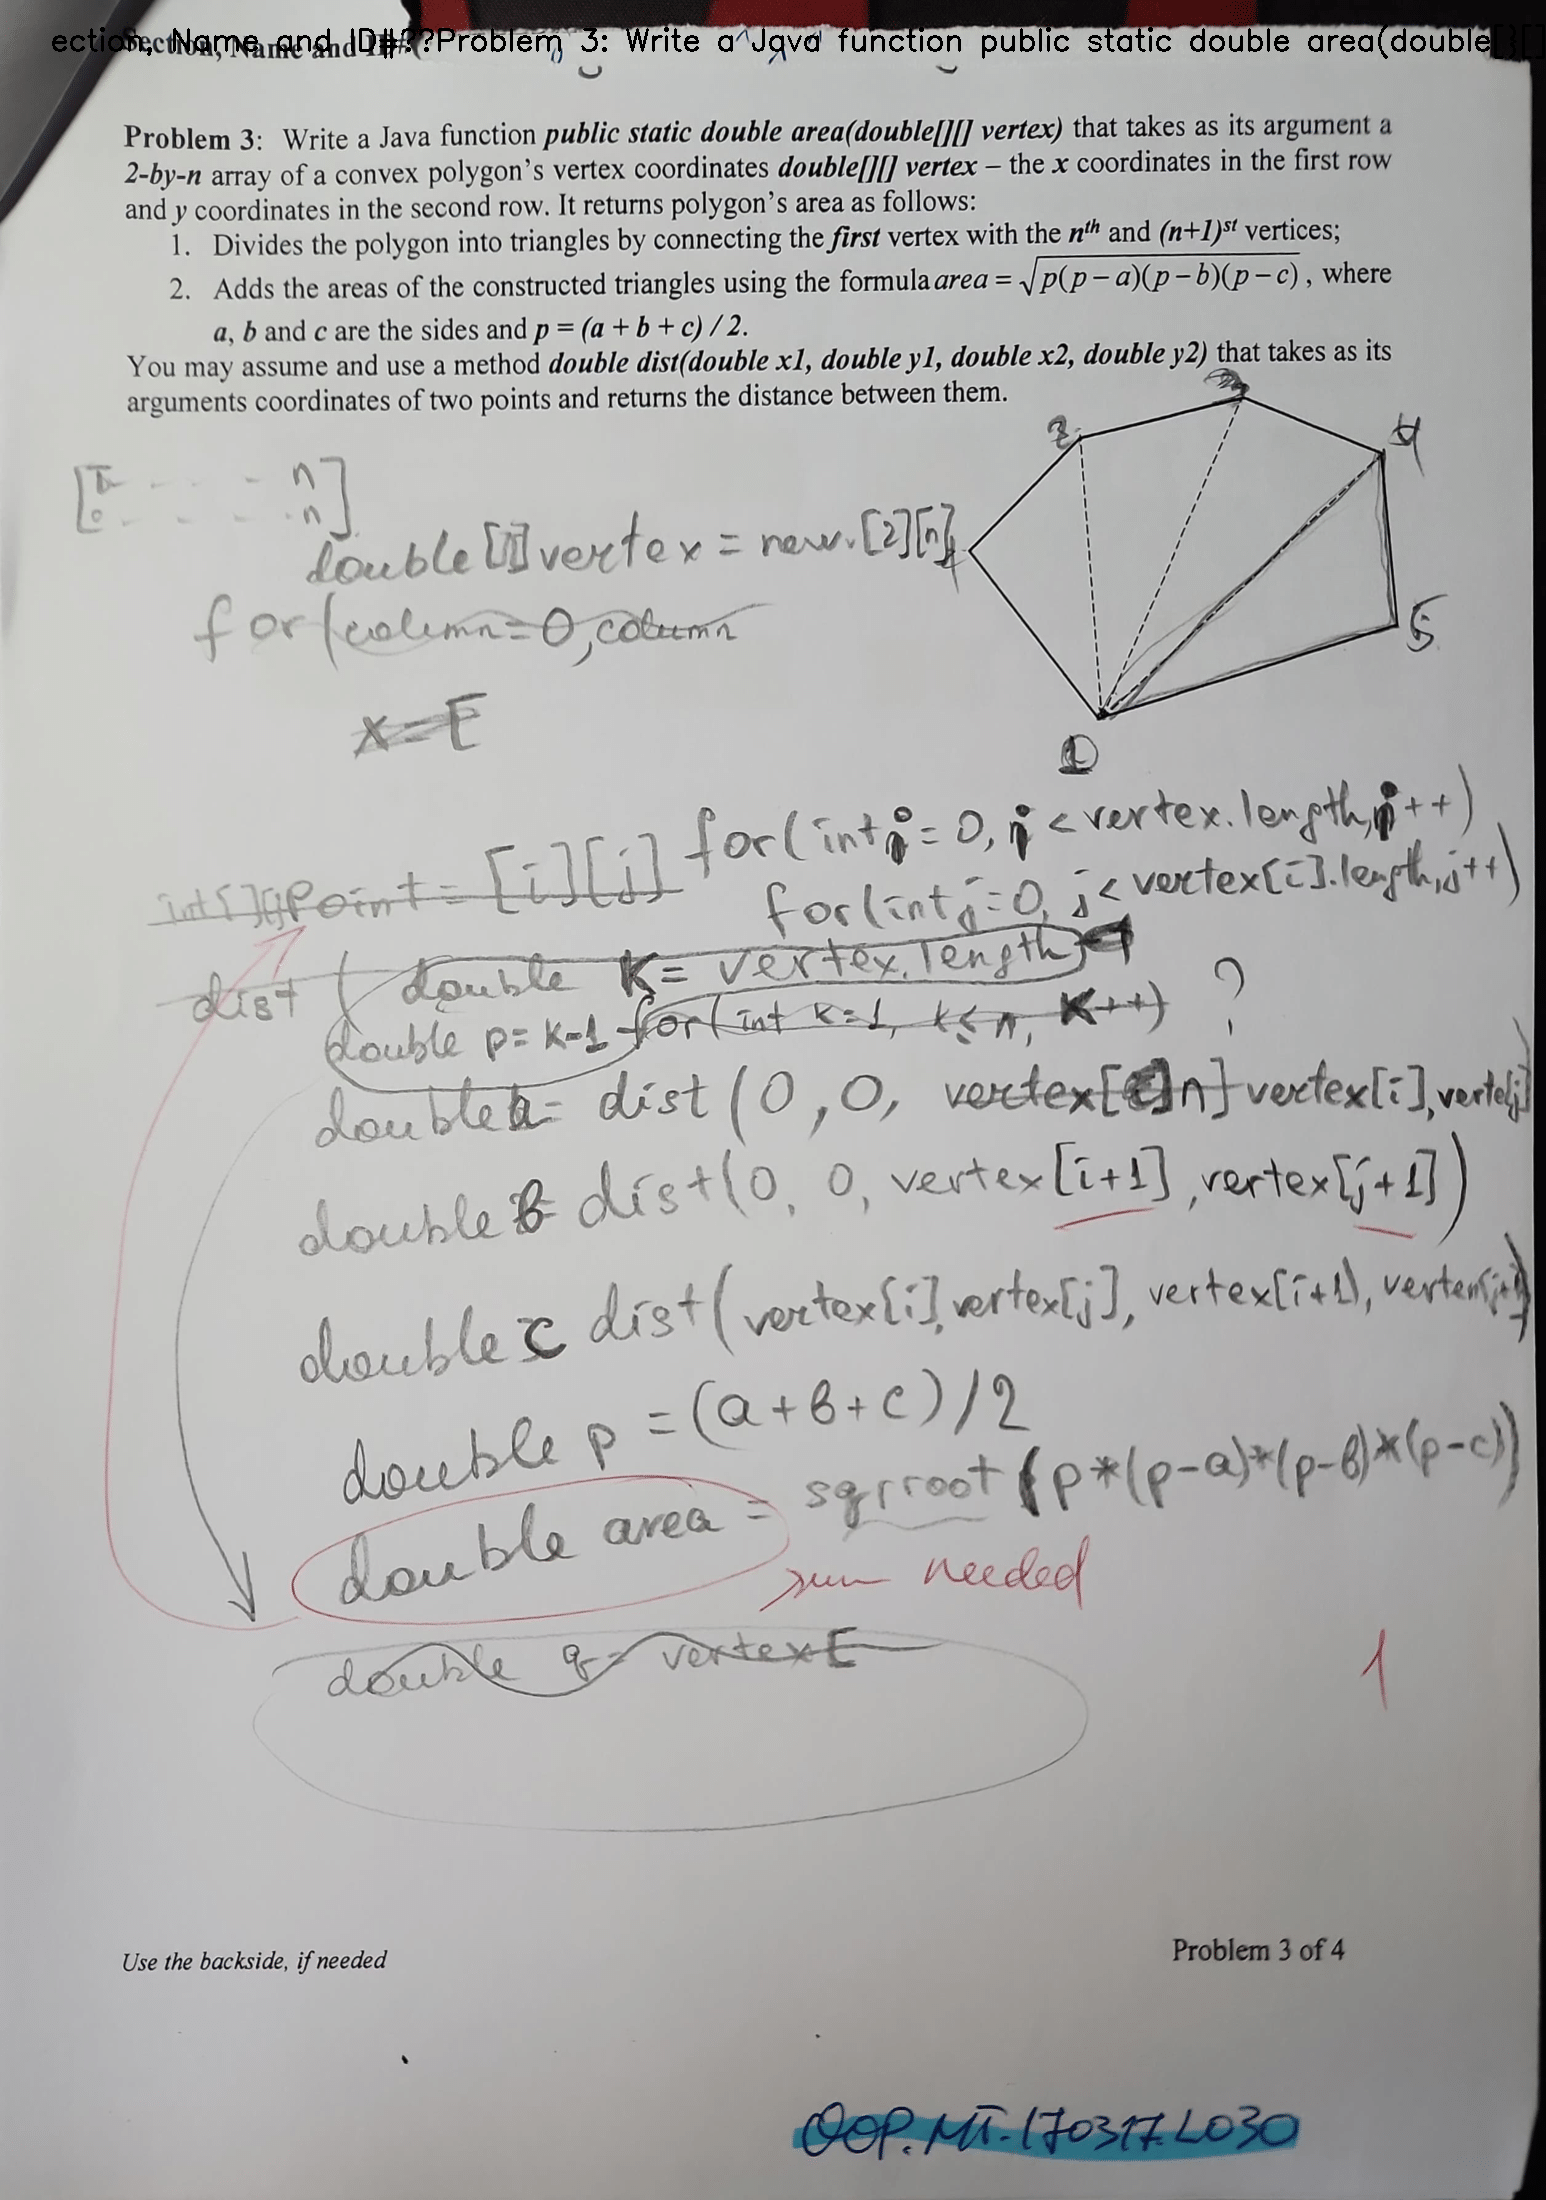 ection, Name and ID#??Problem 3: Write a Java function public static double area(double[][]
Section, Name and ID#
Problem 3: Write a Java function public static double area(double[][] vertex) that takes as its argument a
2-by-n array of a convex polygon's vertex coordinates double[][] vertex – the x coordinates in the first row
and y coordinates in the second row. It returns polygon's area as follows:
1. Divides the polygon into triangles by connecting the first vertex with the nth and (n+1)st vertices;
2. Adds the areas of the constructed triangles using the formula area = √p(p−a)(p−b)(p−c), where
a, b and c are the sides and p = (a + b + c) / 2.
You may assume and use a method double dist(double x1, double y1, double x2, double y2) that takes as its
arguments coordinates of two points and returns the distance between them.
2
4
5
1
n
n
double[][] vertex = new [2][n]
for(column=0, column
x=[
for(int i=0, i<vertex.length, i++)
int[][] Point = [i][j]
for(int j=0, j<vertex[i].length, j++)
dist ( double K= vertex.length
double p= K-1 for(int k=1, k≤n, K++) ?
double a= dist (0,0, vertex[ n] vertex[i], vertex[j]
double b= dist(0, 0, vertex[i+1], vertex[j+1])
double c dist(vertex[i], vertex[j], vertex[i+1], vertex[j+1])
double p = (a+b+c)/2
double area = sqrroot (p*(p-a)*(p-b)*(p-c))
sum needed
double q= vertex[
1
Use the backside, if needed
Problem 3 of 4
OOP.MT.170317.L030